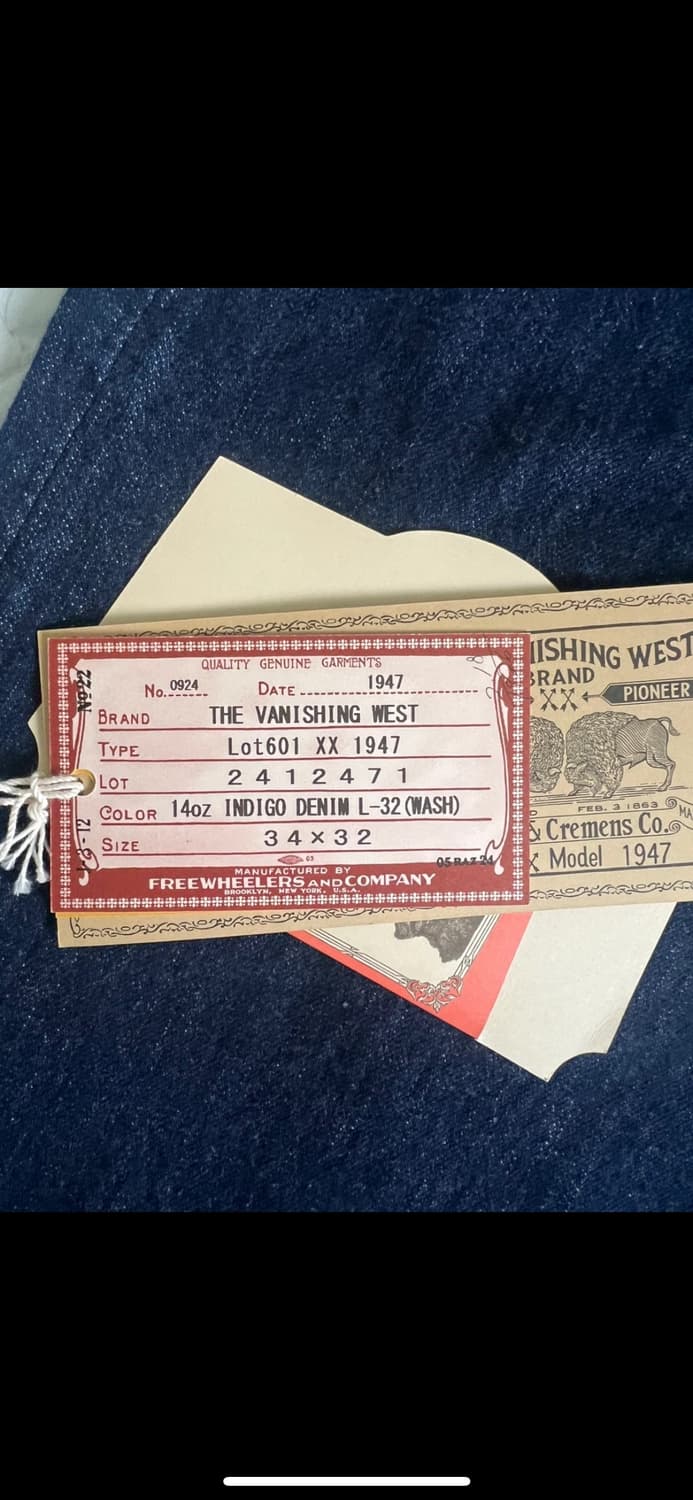 QUALITY GENUINE GARMENTS
No. 0924 DATE 1947
BRAND THE VANISHING WEST
TYPE Lot601 XX 1947
LOT 2412471
COLOR 14oz INDIGO DENIM L-32(WASH)
SIZE 34×32
03
MANUFACTURED BY
FREEWHEELERS AND COMPANY
BROOKLYN, NEW YORK, U.S.A.
No 22
ISHING WEST
BRAND
XX PIONEER
FEB. 3 1863
& Cremens Co.
Model 1947